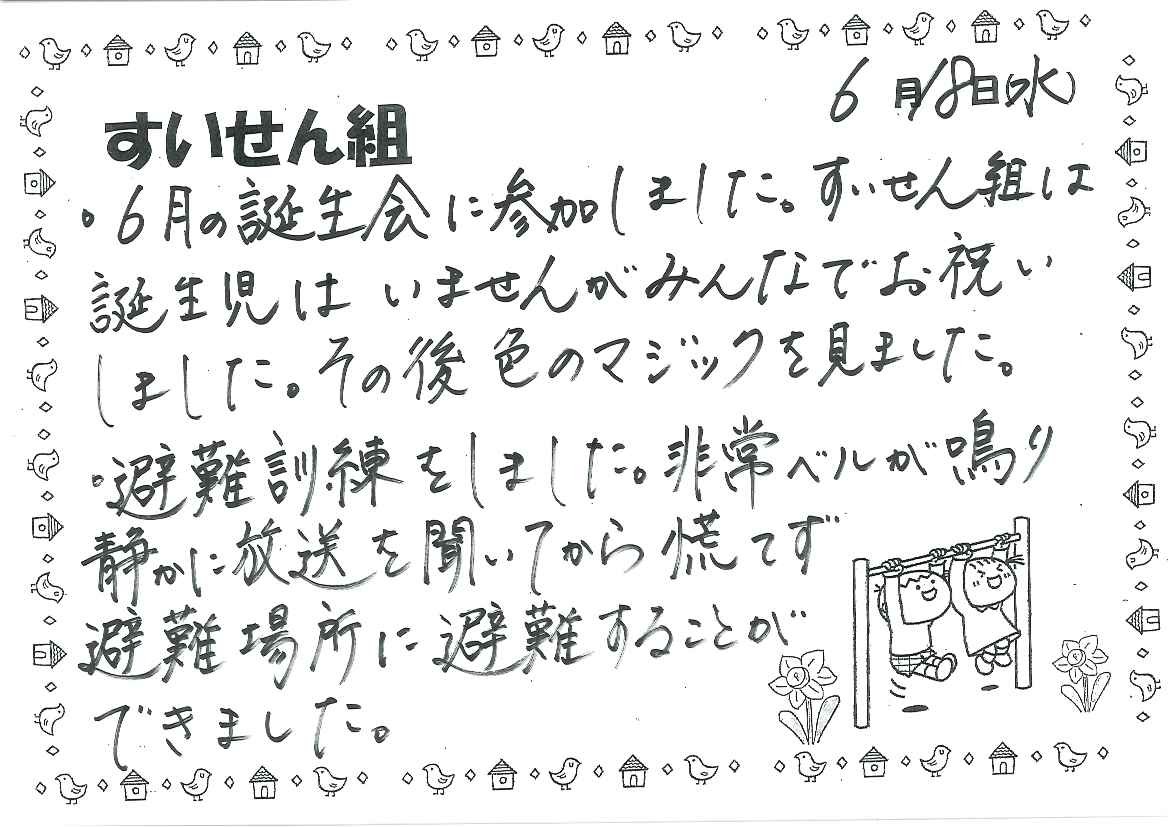 6月18日(水)
すいせん組
。6月の誕生会に参加しました。すいせん組は
誕生児はいませんがみんなでお祝い
しました。その後色のマジックを見ました。
。避難訓練をしました。非常ベルが鳴り
静かに放送を聞いてから慌てず
避難場所に避難することが
できました。